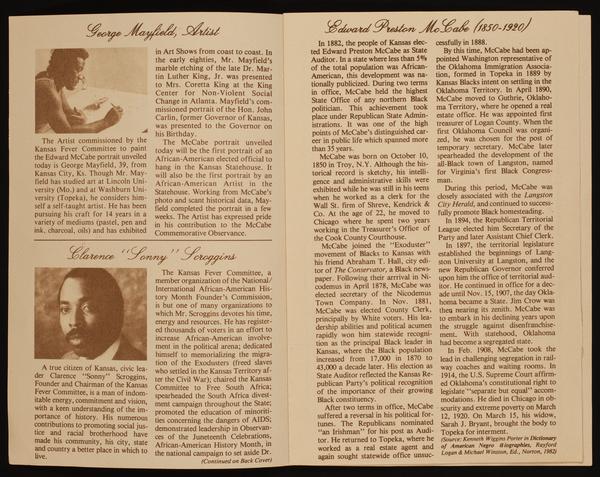 George Mayfield, Artist
The Artist commissioned by the
Kansas Fever Committee to paint
the Edward McCabe portrait unveiled
today is George Mayfield, 39, from
Kansas City, Ks. Though Mr. May-
field has studied art at Lincoln Uni-
versity (Mo.) and at Washburn Uni-
versity (Topeka), he considers him-
self a self-taught artist. He has been
pursuing his craft for 14 years in a
variety of mediums (pastel, pen and
ink, charcoal, oils) and has exhibited
in Art Shows from coast to coast. In
the early eighties, Mr. Mayfield's
marble etching of the late Dr. Mar-
tin Luther King, Jr. was presented
to Mrs. Coretta King at the King
Center for Non-Violent Social
Change in Atlanta. Mayfield's com-
missioned portrait of the Hon. John
Carlin, former Governor of Kansas,
was presented to the Governor on
his Birthday.
The McCabe portrait unveiled
today will be the first portrait of an
African-American elected official to
hang in the Kansas Statehouse. It
will also be the first portrait by an
African-American Artist in the
Statehouse. Working from McCabe's
photo and scant historical data, May-
field completed the portrait in a few
weeks. The Artist has expressed pride
in his contribution to the McCabe
Commemorative Observance.
Clarence "Sonny" Scroggins
A true citizen of Kansas, civic lea-
der Clarence "Sonny" Scroggins,
Founder and Chairman of the Kansas
Fever Committee, is a man of indom-
itable energy, commitment and vision,
with a keen understanding of the im-
portance of history. His numerous
contributions to promoting social jus-
tice and racial brotherhood have
made his community, his city, state
and country a better place in which to
live.
The Kansas Fever Committee, a
member organization of the National/
International African-American His-
tory Month Founder's Commission,
is but one of many organizations to
which Mr. Scroggins devotes his time,
energy and resources. He has register-
ed thousands of voters in an effort to
increase African-American involve-
ment in the political arena; dedicated
himself to memorializing the migra-
tion of the Exodusters (freed slaves
who settled in the Kansas Territory af-
ter the Civil War); chaired the Kansas
Committee to Free South Africa;
spearheaded the South Africa divest-
ment campaign throughout the State;
promoted the education of minorit-
ies concerning the dangers of AIDS;
demonstrated leadership in Observan-
ces of the Juneteenth Celebrations,
African-American History Month, in
the national campaign to set aside Dr.
(Continued on Back Cover)
Edward Preston McCabe (1850-1920)
In 1882, the people of Kansas elec-
ted Edward Preston McCabe as State
Auditor. In a state where less than 5%
of the total population was African-
American, this development was na-
tionally publicized. During two terms
in office, McCabe held the highest
State Office of any northern Black
politician. This achievement took
place under Republican State Admin-
istrations. It was one of the high
points of McCabe's distinguished car-
eer in public life which spanned more
than 35 years.
McCabe was born on October 10,
1850 in Troy, N.Y. Although the his-
torical record is sketchy, his intelli-
gence and administrative skills were
exhibited while he was still in his teens
when he worked as a clerk for the
Wall St. firm of Shreve, Kendrick &
Co. At the age of 22, he moved to
Chicago where he spent two years
working in the Treasurer's Office of
the Cook County Courthouse.
McCabe joined the "Exoduster"
movement of Blacks to Kansas with
his friend Abraham T. Hall, city edi-
tor of The Conservator, a Black news-
paper. Following their arrival in Ni-
codemus in April 1878, McCabe was
elected secretary of the Nicodemus
Town Company. In Nov. 1881,
McCabe was elected County Clerk,
principally by White voters. His lea-
dership abilities and political acumen
rapidly won him statewide recogni-
tion as the principal Black leader in
Kansas, where the Black population
increased from 17,000 in 1870 to
43,000 a decade later. His election as
State Auditor reflected the Kansas Re-
publican Party's political recognition
of the importance of their growing
Black constituency.
After two terms in office, McCabe
suffered a reversal in his political for-
tunes. The Republicans nominated
"an Irishman" for his post as Audi-
tor. He returned to Topeka, where he
worked as a real estate agent and
again sought statewide office unsuc-
cessfully in 1888.
By this time, McCabe had been ap-
pointed Washington representative of
the Oklahoma Immigration Associa-
tion, formed in Topeka in 1889 by
Kansas Blacks intent on settling in the
Oklahoma Territory. In April 1890,
McCabe moved to Guthrie, Oklaho-
ma Territory, where he opened a real
estate office. He was appointed first
treasurer of Logan County. When the
first Oklahoma Council was organi-
zed, he was chosen for the post of
temporary secretary. McCabe later
spearheaded the development of the
all-Black town of Langston, named
for Virginia's first Black Congress-
man.
During this period, McCabe was
closely associated with the Langston
City Herald, and continued to success-
fully promote Black homesteading.
In 1894, the Republican Territorial
League elected him Secretary of the
Party and later Assistant Chief Clerk.
In 1897, the territorial legislature
established the beginnings of Lang-
ston University at Langston, and the
new Republican Governor conferred
upon him the office of territorial aud-
itor. He continued in office for a dec-
ade until Nov. 15, 1907, the day Okla-
homa became a State. Jim Crow was
then nearing its zenith. McCabe was
to embark in his declining years upon
the struggle against disenfranchise-
ment. With statehood, Oklahoma
had become a segregated state.
In Feb. 1908, McCabe took the
lead in challenging segregation in rail-
way coaches and waiting rooms. In
1914, the U.S. Supreme Court affirm-
ed Oklahoma's constitutional right to
legislate "separate but equal" accom-
modations. He died in Chicago in ob-
scurity and extreme poverty on March
12, 1920. On March 15, his widow,
Sarah J. Bryant, brought the body to
Topeka for interment.
(Source: Kenneth Wiggins Porter in Dictionary
of American Negro Biographies, Rayford
Logan & Michael Winston, Ed., Norton, 1982)